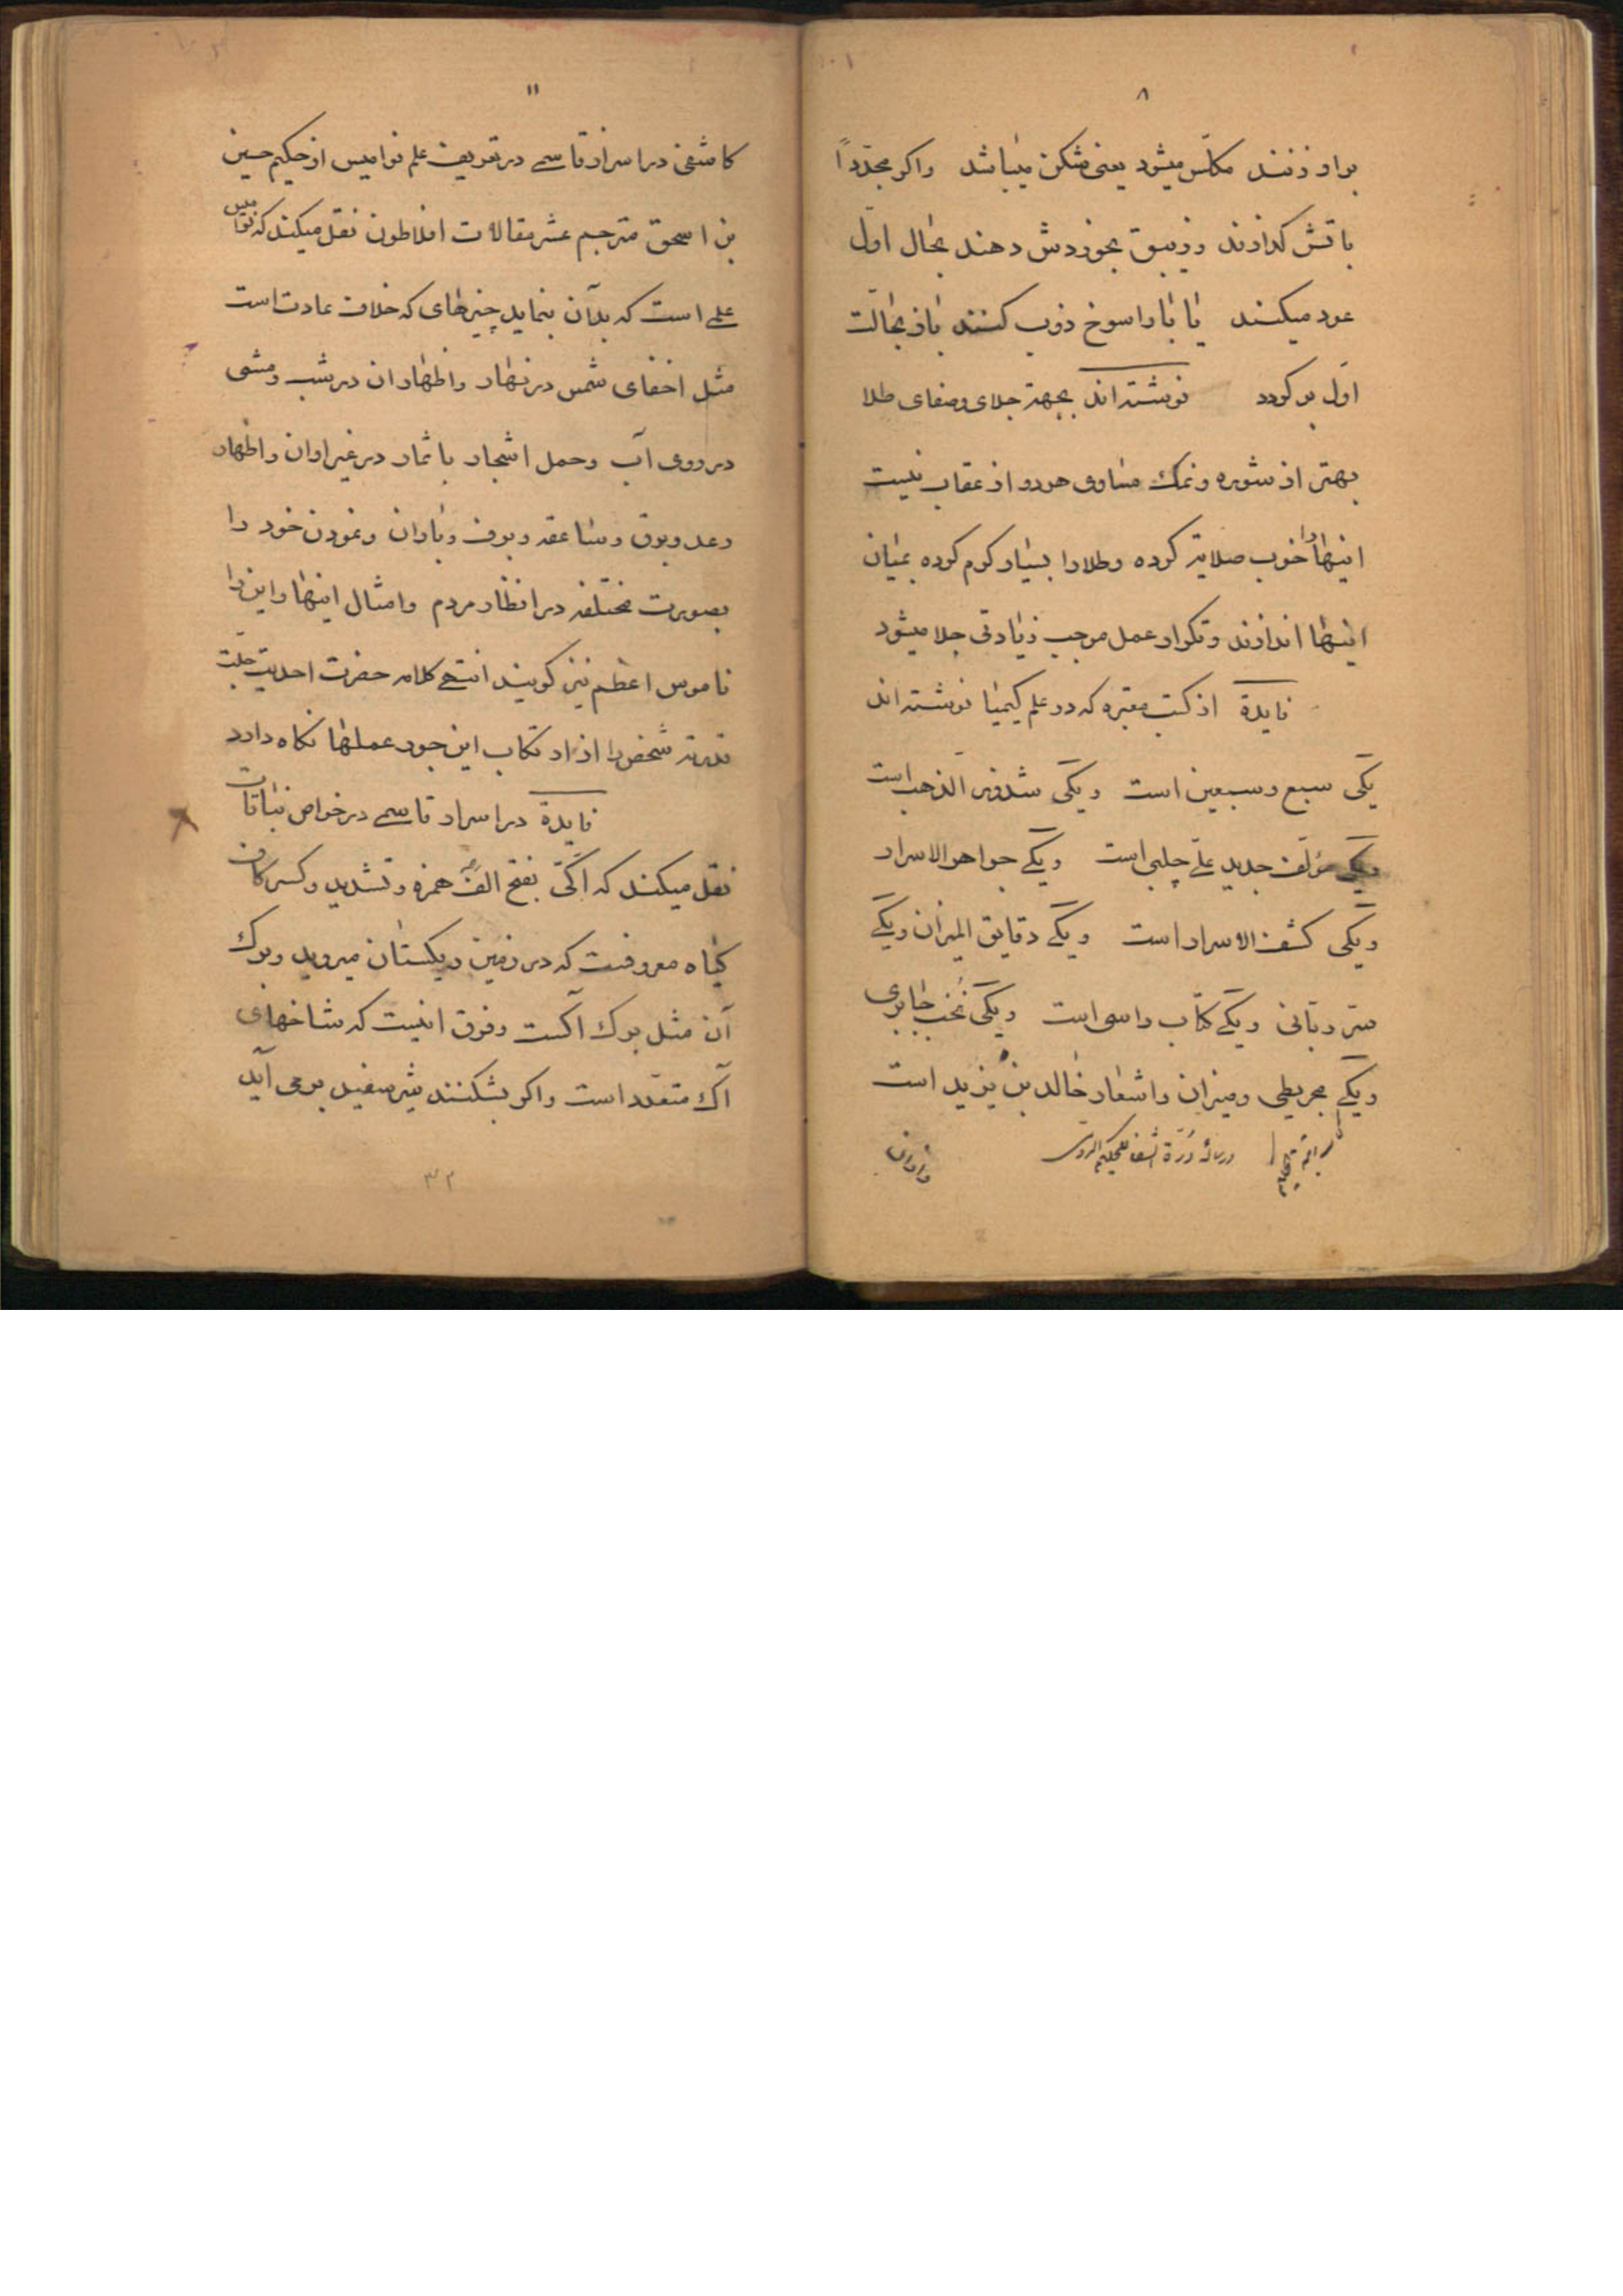 ۸
براو زنند مکلّس میشود یعنی شکن میباشد واکر مجدّداً
باتش کدازند وزیبق بخوردش دهند بحال اوّل
عود میکند یا باراسوخ ذوب کنند باز بحالت
اوّل بر کردد نوشته اند بجهة جلای وصفای طلا
بهتر از شوره ونمک مساوی هردو از عقاب نیست
اینها را خوب صلایه کرده وطلارا بسیار کرم کرده بمیان
اینها اندازند وتکرار عمل موجب زیادتی جلا میشود
فایدة از کتب معتبره که در علم کیمیا نوشته اند
یکی سبع وسبعین است ویکی شذور الذهب است
ویکی مؤلف جدید علی چلبی است ویکی جواهر الاسرار
ویکی کشف الاسرار است ویکی دقایق المیزان ویکی
سرّ ربانی ویکی کتاب راسی است ویکی نخب جابری
ویکی مجریطی ومیزان واشعار خالد بن یزید است
ورساله درّة
۱۱
کاشفی در اسرار قاسمی در تعریف علم نوامیس از حکیم حسین
بن اسحق مترجم عشر مقالات افلاطون نقل میکند که نوامیس
علمی است که بدآن بنماید چیزهای که خلاف عادت است
مثل اخفای شمس در نهار واظهار ان در شب ومشی
در روی آب وحمل اشجار باثمار در غیر اوان واظهار
رعد وبرق وصاعقه وبرف وباران ونمودن خود را
بصورت مختلفه در انظار مردم وامثال اینها واین را
ناموس اعظم نیز کویند انتهی کلامه حضرت احدیت جلّت
قدرته شخص را از ارتکاب این جور عملها نکاه دارد
فایدة در اسرار قاسمی در خواص نباتات
نقل میکند که اکّی بفتح الف همزه وتشدید وکسر کاف
کیاه معروفست که در زمین ریکستان میروید وبرک
آن مثل برک آکست وفرق اینست که شاخهای
آک متعدّد است واکر بشکنند شیر سفید بر می آید
۳۳